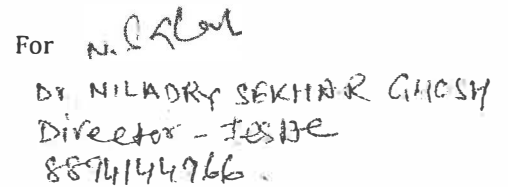 For
Dr NILADRY SEKHAR GHOSH
Director -
8894144766.